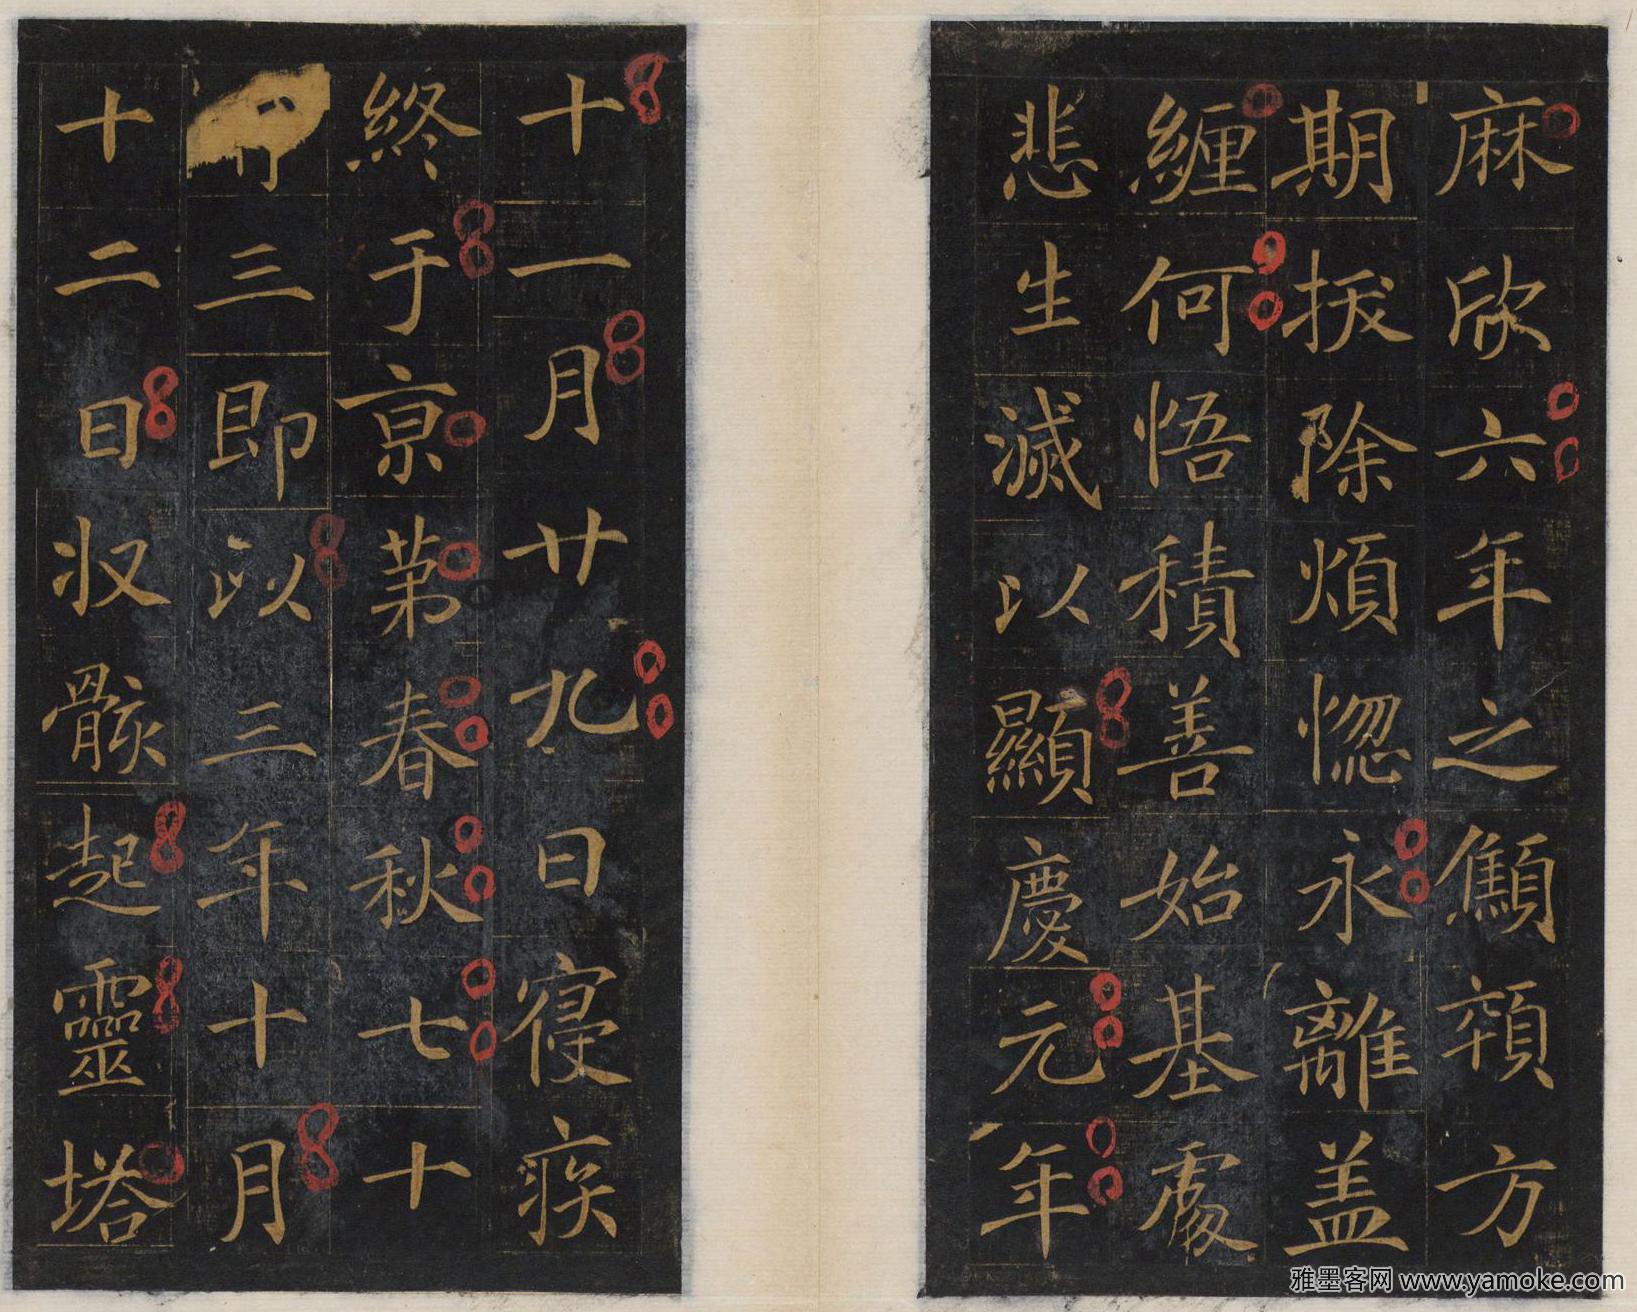 麻欣六年之顦顇方
期拔除煩惱永離盖
纏何悟積善始基處
悲生滅以顯慶元年
十一月廿九日寢疾
終于亰苐春秋七十
三即以三年十月
十二日収骸起靈塔
雅墨客网 www.yamoke.com